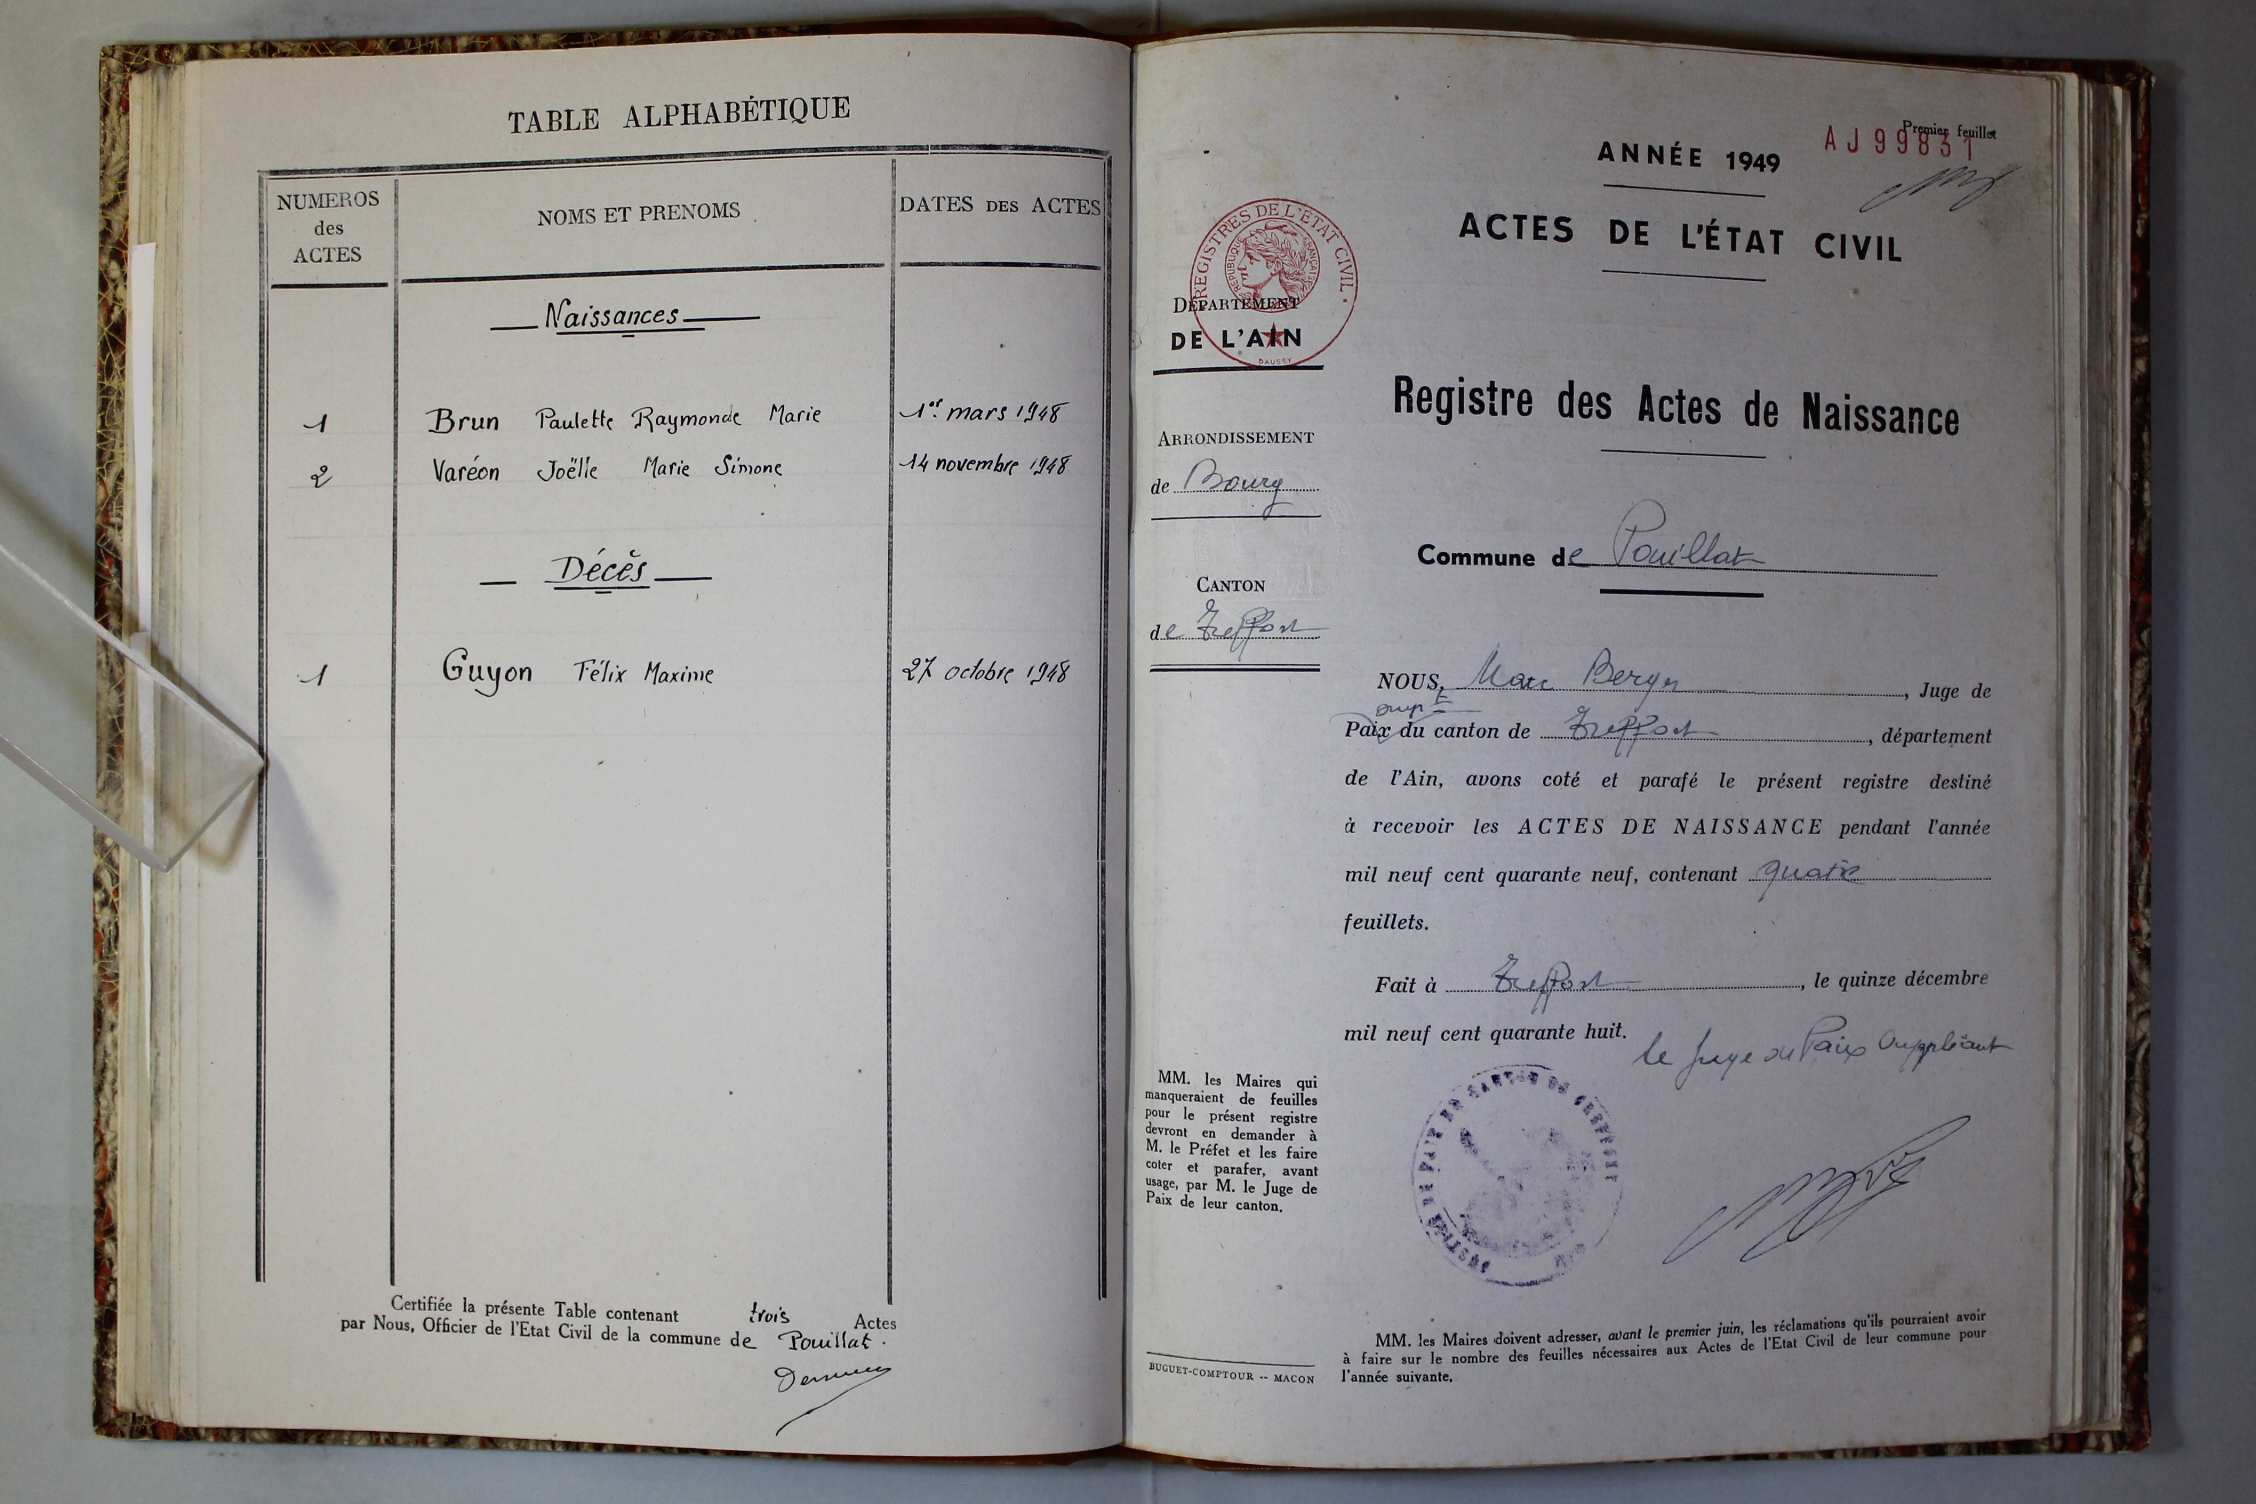 TABLE ALPHABÉTIQUE
NUMEROS
des
ACTES
NOMS ET PRENOMS
DATES DES ACTES
Naissances
1 Brun Paulette Raymonde Marie 1er mars 1948
2 Varéon Joëlle Marie Simone 14 novembre 1948
Décès
1 Guyon Félix Maxime 27 octobre 1948
Certifiée la présente Table contenant trois Actes
par Nous, Officier de l'Etat Civil de la commune de Pouillat.
Premier feuillet
AJ99831
ANNÉE 1949
ACTES DE L'ÉTAT CIVIL
REGISTRES DE L'ÉTAT CIVIL
RÉPUBLIQUE FRANÇAISE
DAUSSY
DÉPARTEMENT
DE L'AIN
Registre des Actes de Naissance
ARRONDISSEMENT
de Bourg
Commune de Pouillat
CANTON
de Treffort
NOUS, Marc Berger, Juge de
supt
Paix du canton de Treffort, département
de l'Ain, avons coté et parafé le présent registre destiné
à recevoir les ACTES DE NAISSANCE pendant l'année
mil neuf cent quarante neuf, contenant quatre
feuillets.
Fait à Treffort, le quinze décembre
mil neuf cent quarante huit.
le Juge de Paix suppléant
JUSTICE DE PAIX DU CANTON DE
MM. les Maires qui
manqueraient de feuilles
pour le présent registre
devront en demander à
M. le Préfet et les faire
coter et parafer, avant
usage, par M. le Juge de
Paix de leur canton.
MM. les Maires doivent adresser, avant le premier juin, les réclamations qu'ils pourraient avoir
à faire sur le nombre des feuilles nécessaires aux Actes de l'Etat Civil de leur commune pour
l'année suivante.
BUGUET-COMPTOUR -- MACON